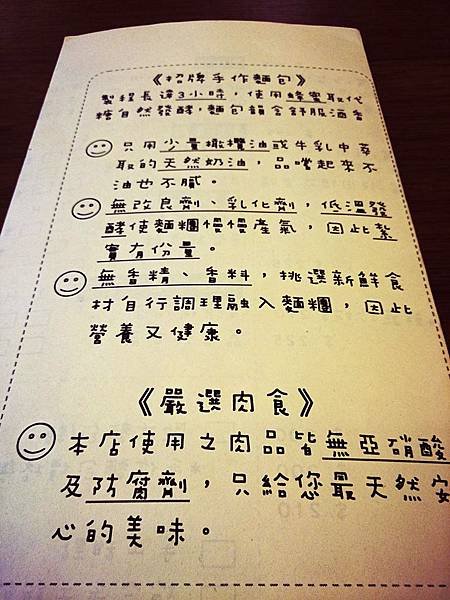 《招牌手作麵包》
製程長達3小時，使用蜂蜜取代
糖自然發酵，麵包韻含舒服酒香
只用少量橄欖油或牛乳中萃
取的天然奶油，品嚐起來不
油也不膩。
無改良劑、乳化劑，低溫發
酵使麵糰慢慢產氣，因此紮
實有份量。
無香精、香料，挑選新鮮食
材自行調理融入麵糰，因此
營養又健康。
《嚴選肉食》
本店使用之肉品皆無亞硝酸
及防腐劑，只給您最天然安
心的美味。